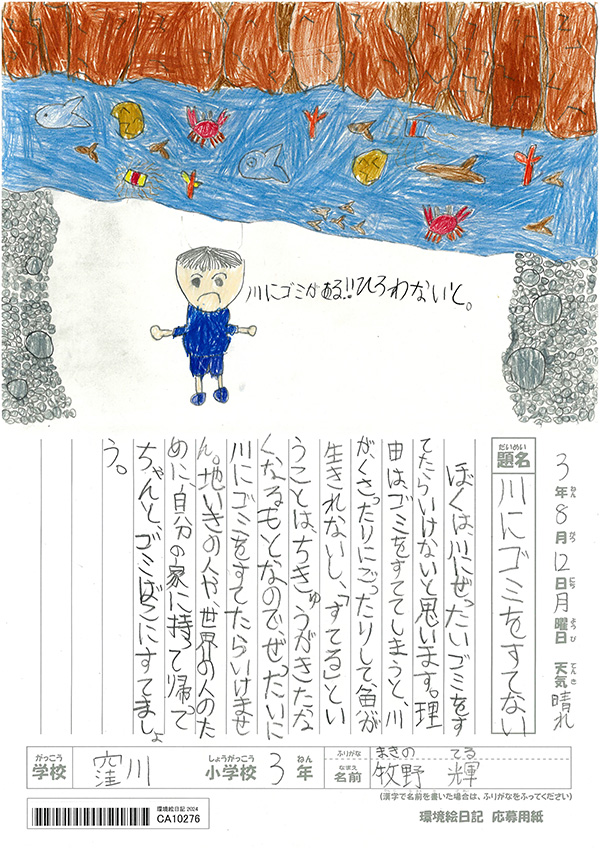 川にゴミがある!!ひろわないと。
3年8月12日月曜日 天気晴れ
ねん がつ にち ようび てんき
だいめい
題名 川にゴミをすてない
ぼくは、川にぜったいゴミをす
てたらいけないと思います。理
由はゴミをすててしまうと、川
が、くさったりにごったりして、魚が
生きれないし、「すてる」とい
うことは、ちきゅうがきたな
くなるもとなので、ぜったいに
川にゴミをすてたらいけませ
ん。地いきの人や、世界の人のた
めに、自分の家に持って帰って
ちゃんと、ゴミばこにすてましょ
う。
がっこう しょうがっこう ねん
学校 窪川 小学校 3年
ふりがな まきの てる
なまえ
名前 牧野 輝
(漢字で名前を書いた場合は、ふりがなをふってください)
環境絵日記 2024
CA10276
環境絵日記 応募用紙